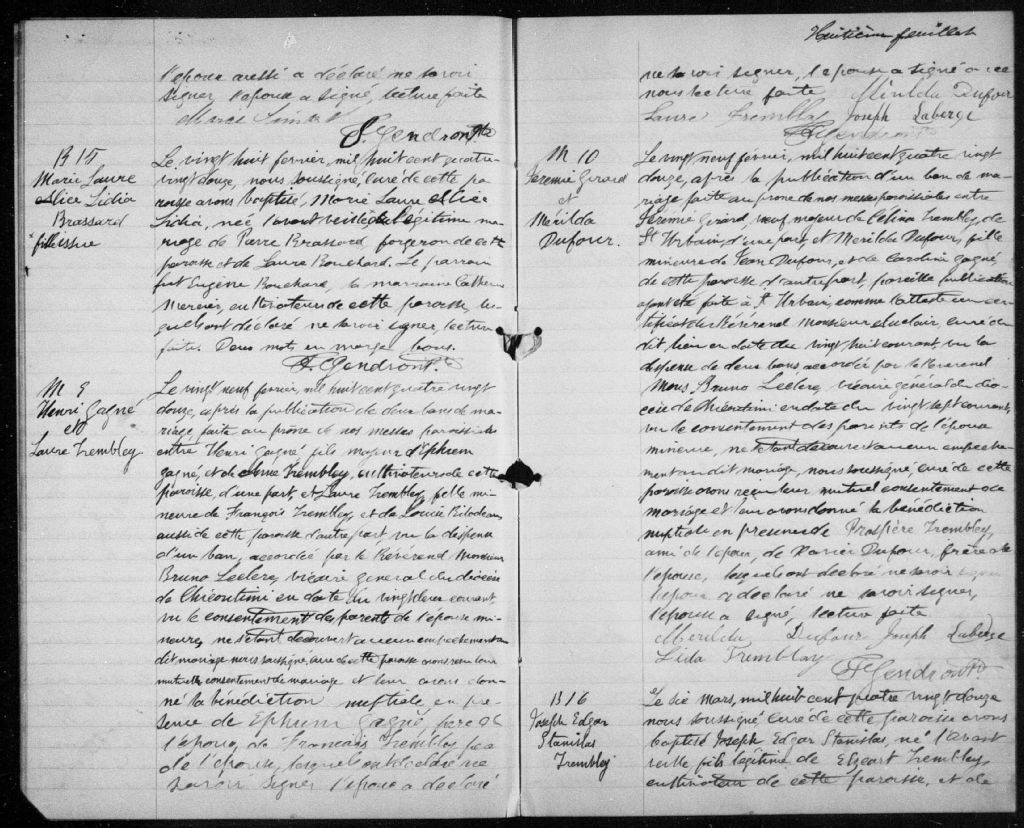 l'epoux aussi a déclaré ne savoir
signer, l'epoux a signé, lecture faite
F. Gendron Ptr
B 15
Marie Laure
Alice Lidia
Brassard
fille issue
Le vingt huit fevrier, mil huit cent quatre
vingt douze, nous soussigné, curé de cette pa
roisse avons baptisé, Marie Laure Alice
Lidia, née l'avant veille du légitime ma
riage de Pierre Brassard forgeron de cette
paroisse et de Laure Bouchard. Le parrain
fut Eugène Bouchard, la marraine Catherine
Mercier, cultivateur de cette paroisse, les
quels ont déclaré ne savoir signer, lecture
faite. Deux mots en marge bons.
F. Gendron Ptr.
M 9
Henri Gagné
et
Laure Trembley
Le vingt neuf fevrier, mil huit cent quatre vingt
douze, après la publication de deux bans de ma
riage, faite au prône de nos messes paroissiales
entre Henri Gagné, fils majeur d'Ephrem
Gagné, et de Trembley, cultivateur de cette
paroisse, d'une part, et Laure Trembley, fille mi
neure de François Trembley, et de Louise Bilodeau,
aussi de cette paroisse d'autre part vu la dispense
d'un ban, accordée par le Révérend Monsieur
Bruno Leclerc, vicaire general du diocèse
de Chicoutimi en date du vingt deux courant,
vu le consentement des parents de l'épouse mi
neure, ne s'étant découvert aucun empêchement au
dit mariage nous soussigné, curé de cette paroisse avons reçu leur
mutuel consentement de mariage et leur avons don
né la bénédiction nuptiale, en pre
sence de Ephrem Gagné, père de
l'epoux, de François Trembley père
de l'épouse, lesquels ont déclaré ne
savoir signer l'epoux a déclaré
Huitième feuillet
ne savoir signer, l'epouse a signé avec
nous lecture faite Mérilda Dufour
Laure Tremblay Joseph Laberge
F. Gendron Ptr
M 10
Jeremie Girard
et
Mérilda
Dufour.
Le vingt neuf février, mil huit cent quatre vingt
douze, après la publication d'un ban de ma
riage faite au prône de nos messes paroissiales entre
Jérémie Girard, veuf majeur de Trembley, de
St Urbain, d'une part, et Mérilda Dufour, fille
mineure de Jean Dufour, et de Caroline Gagné
de cette paroisse d'autre part, pareille publication
ayant été faite à St Urbain, comme l'atteste un cer
tificat du Révérend Monsieur Auclair, curé du
dit lieu en date du vingt huit courant, vu la
dispense de deux bans accordée par le Reverend
Mons. Bruno Leclerc, vicaire général du dio
cèse de Chicoutimi en date du vingt sept courant,
vu le consentement des parents de l'epouse
mineure, ne s'étant découvert aucun empêche
ment au dit mariage, nous soussigné, curé de cette
paroisse avons reçu leur mutuel consentement de
mariage et leur avons donné la bénédiction
nuptiale en presence de Prospère Trembley,
ami de l'epoux, de Xavier Dufour, frère de
l'epouse, lesquels ont déclaré ne savoir signer
l'epoux a déclaré ne savoir signer,
l'épouse a signé, lecture faite
Mérilda Dufour Joseph Laberge
Lida Tremblay
F. Gendron Ptr.
B 16
Joseph Edgar
Stanislas
Trembley
Le six mars, mil huit cent quatre vingt douze
nous soussigné curé de cette paroisse avons
baptisé Joseph Edgar Stanislas, né l'avant
veille fils légitime de Elzéart Trembley,
cultivateur de cette paroisse, et de